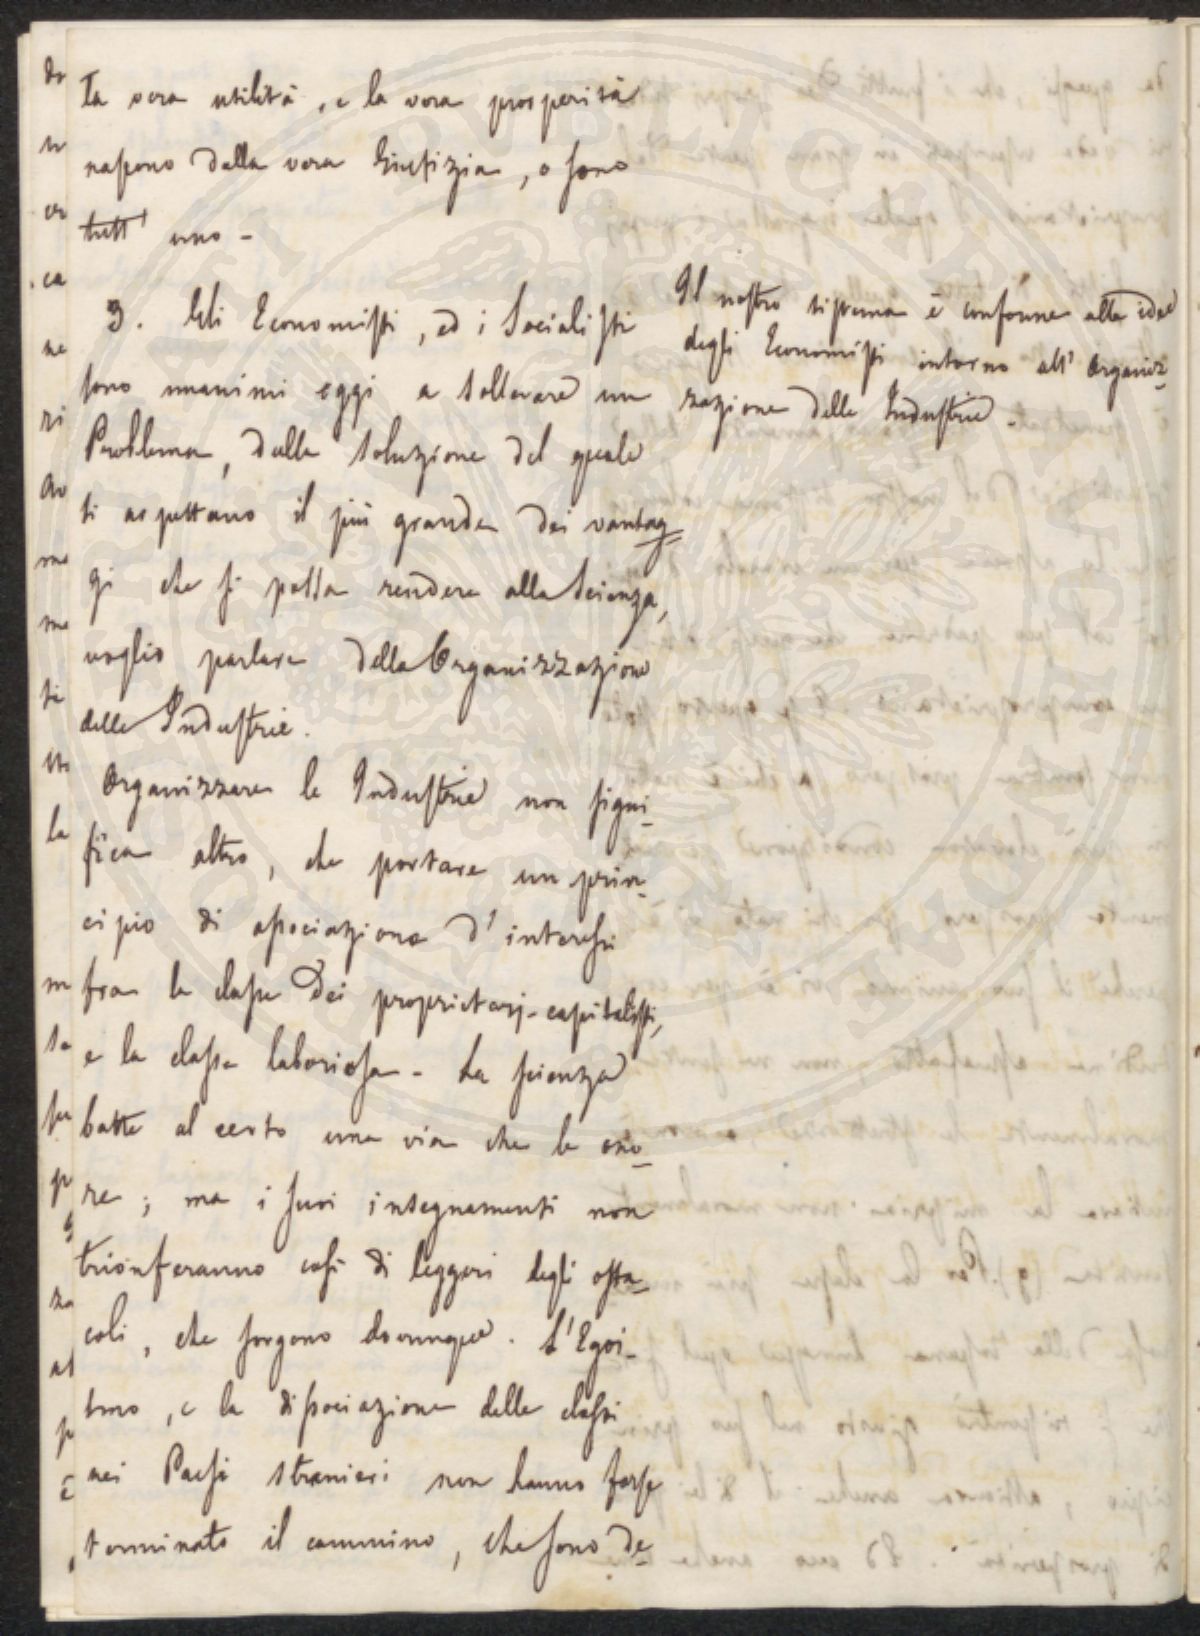 la vera utilità, e la vera prosperità
nascono dalla vera Giustizia, o sono
tutt' uno -
3. Gli Economisti, ed i Socialisti
sono unanimi oggi a sollevare un
Problema, dalla soluzione del quale
si aspettano il più grande dei vantag=
gi che si possa rendere alla Scienza,
voglio parlare della Organizzazione
delle Industrie.
Organizzare le Industrie non signi-
fica altro, che portare un prin-
cipio di associazione d'interessi
fra la classe dei proprietarj-capitalisti,
e la classe laboriosa - La scienza
batte al certo una via che la ono-
ra; ma i suoi insegnamenti non
trionferanno così di leggeri degli osta-
coli, che sorgono dovunque. L'Egoi-
smo, e la dissociazione delle classi
nei Paesi stranieri non hanno forse
terminato il cammino, che sono de-
Il nostro sistema è conforme alle idee
degli Economisti intorno all' Organiz=
zazione delle Industrie -